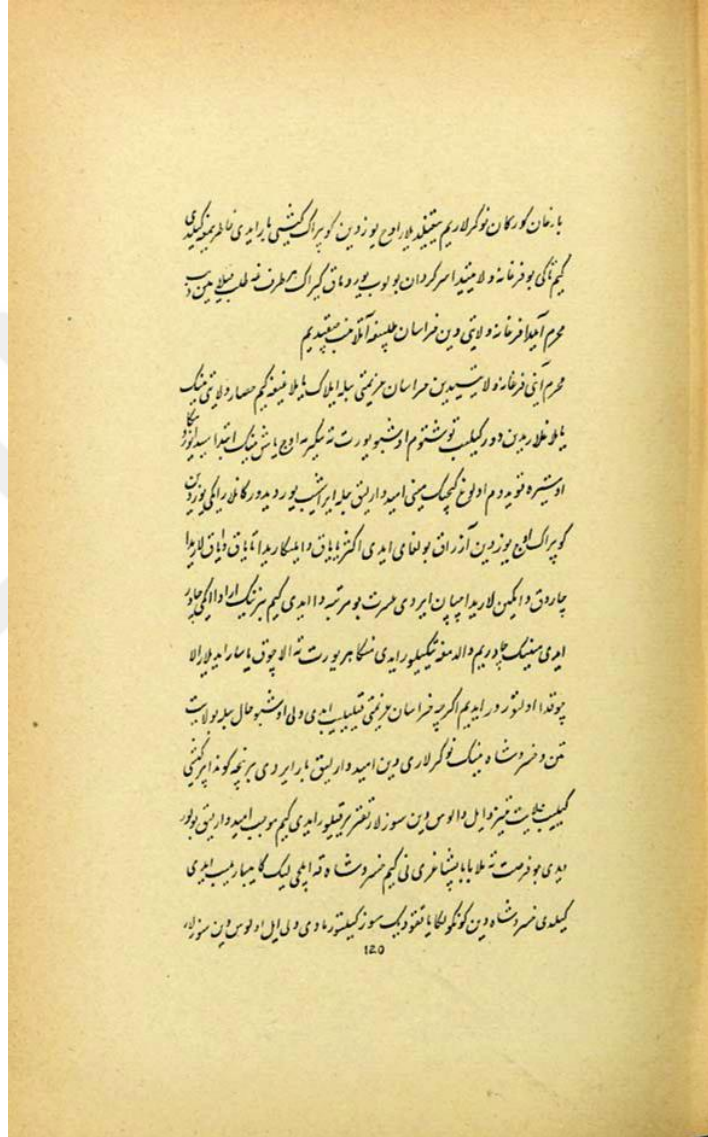 بارغان کورکان نوکرلاریم ییغیلدیلار اوچ یوزدین کوپراک کیشی بار ایدی خاطریمغه کیلدی
کیم تاکی بو فرغانه ولایتیدا سرکردان بولوب یوروماق کیراک هر طرف نه طلب قیلای مین دیب
محرم آییدا فرغانه ولایتی دین خراسان چیقیدیم
محرم آیی فرغانه ولایتیدین خراسان عزیمتی بیله ایلاک یایلاغیغه کیم حصار ولایتی نینک
یایلاغلاریدین دور کیلیب توشتوم اوشبو یورت ته یکیرمه اوچ یاش نینک ابتداسیدا
اوستره قویدوم اولوغ کیچیک مینی امیدوارلیق بیله ایراشیب یورویدورکانلار ایکی یوزدین
کوپراک اوچ یوزدین آزراق بولغای ایدی اکثر یایاق و ایلیکلاریدا تایاق و ایاقلاریدا
چاروق و ایکین لاریدا چاپان ایردی عسرت بو مرتبه دا ایدی کیم بیزنینک ارادا ایکی چادر
ایدی مینینک چادریم والدمغه تیکیلور ایدی منکا هر یورت ته الاچوق یاسار ایدیلار الا
چوقدا اولتورور ایدیم اکرچه خراسان عزیمتی قیلیلیب ایدی ولی اوشبو حال بیله ولایت
تین و خسروشاه نینک نوکرلاری دین امیدوارلیق بار ایردی بر نچه کوندا بر کیشی
کیلیب ولایت و ایل و الوس دین سوزلار تقریر قیلور ایدی کیم موجب امیدوارلیق بولور
ایدی بو فرصت ته ملا بابا پشاغری نی کیم خسروشاه قه ایلچی لیک کا ییباریلیب ایدی
کیلدی خسروشاه دین کونکولکا یاققودیک سوز کیلتورمادی ولی ایل و الوس دین سوزلار
120